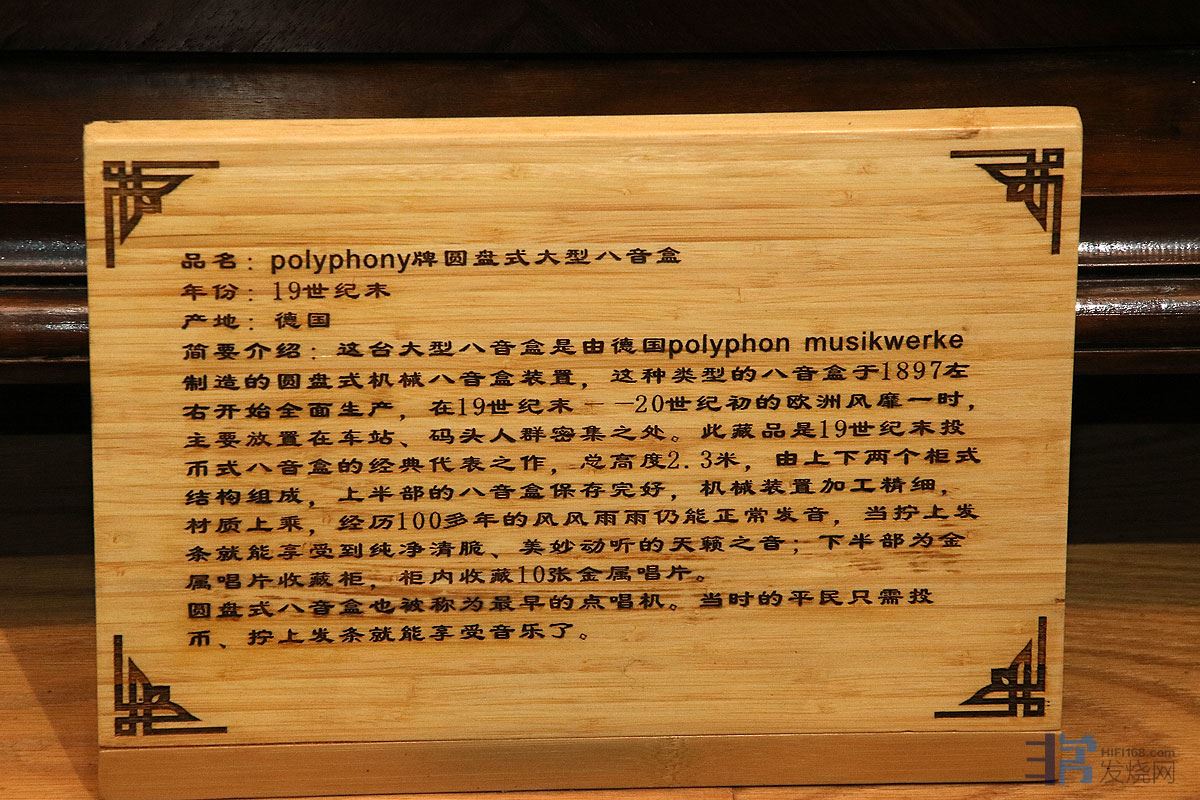 品名：polyphony牌圆盘式大型八音盒
年份：19世纪末
产地：德国
简要介绍：这台大型八音盒是由德国polyphon musikwerke
制造的圆盘式机械八音盒装置，这种类型的八音盒于1897左
右开始全面生产，在19世纪末——20世纪初的欧洲风靡一时，
主要放置在车站、码头人群密集之处。此藏品是19世纪末投
币式八音盒的经典代表之作，总高度2.3米，由上下两个柜式
结构组成，上半部的八音盒保存完好，机械装置加工精细，
材质上乘，经历100多年的风风雨雨仍能正常发音，当拧上发
条就能享受到纯净清脆、美妙动听的天籁之音；下半部为金
属唱片收藏柜，柜内收藏10张金属唱片。
圆盘式八音盒也被称为最早的点唱机。当时的平民只需投
币、拧上发条就能享受音乐了。
HIFI168.com
发烧网